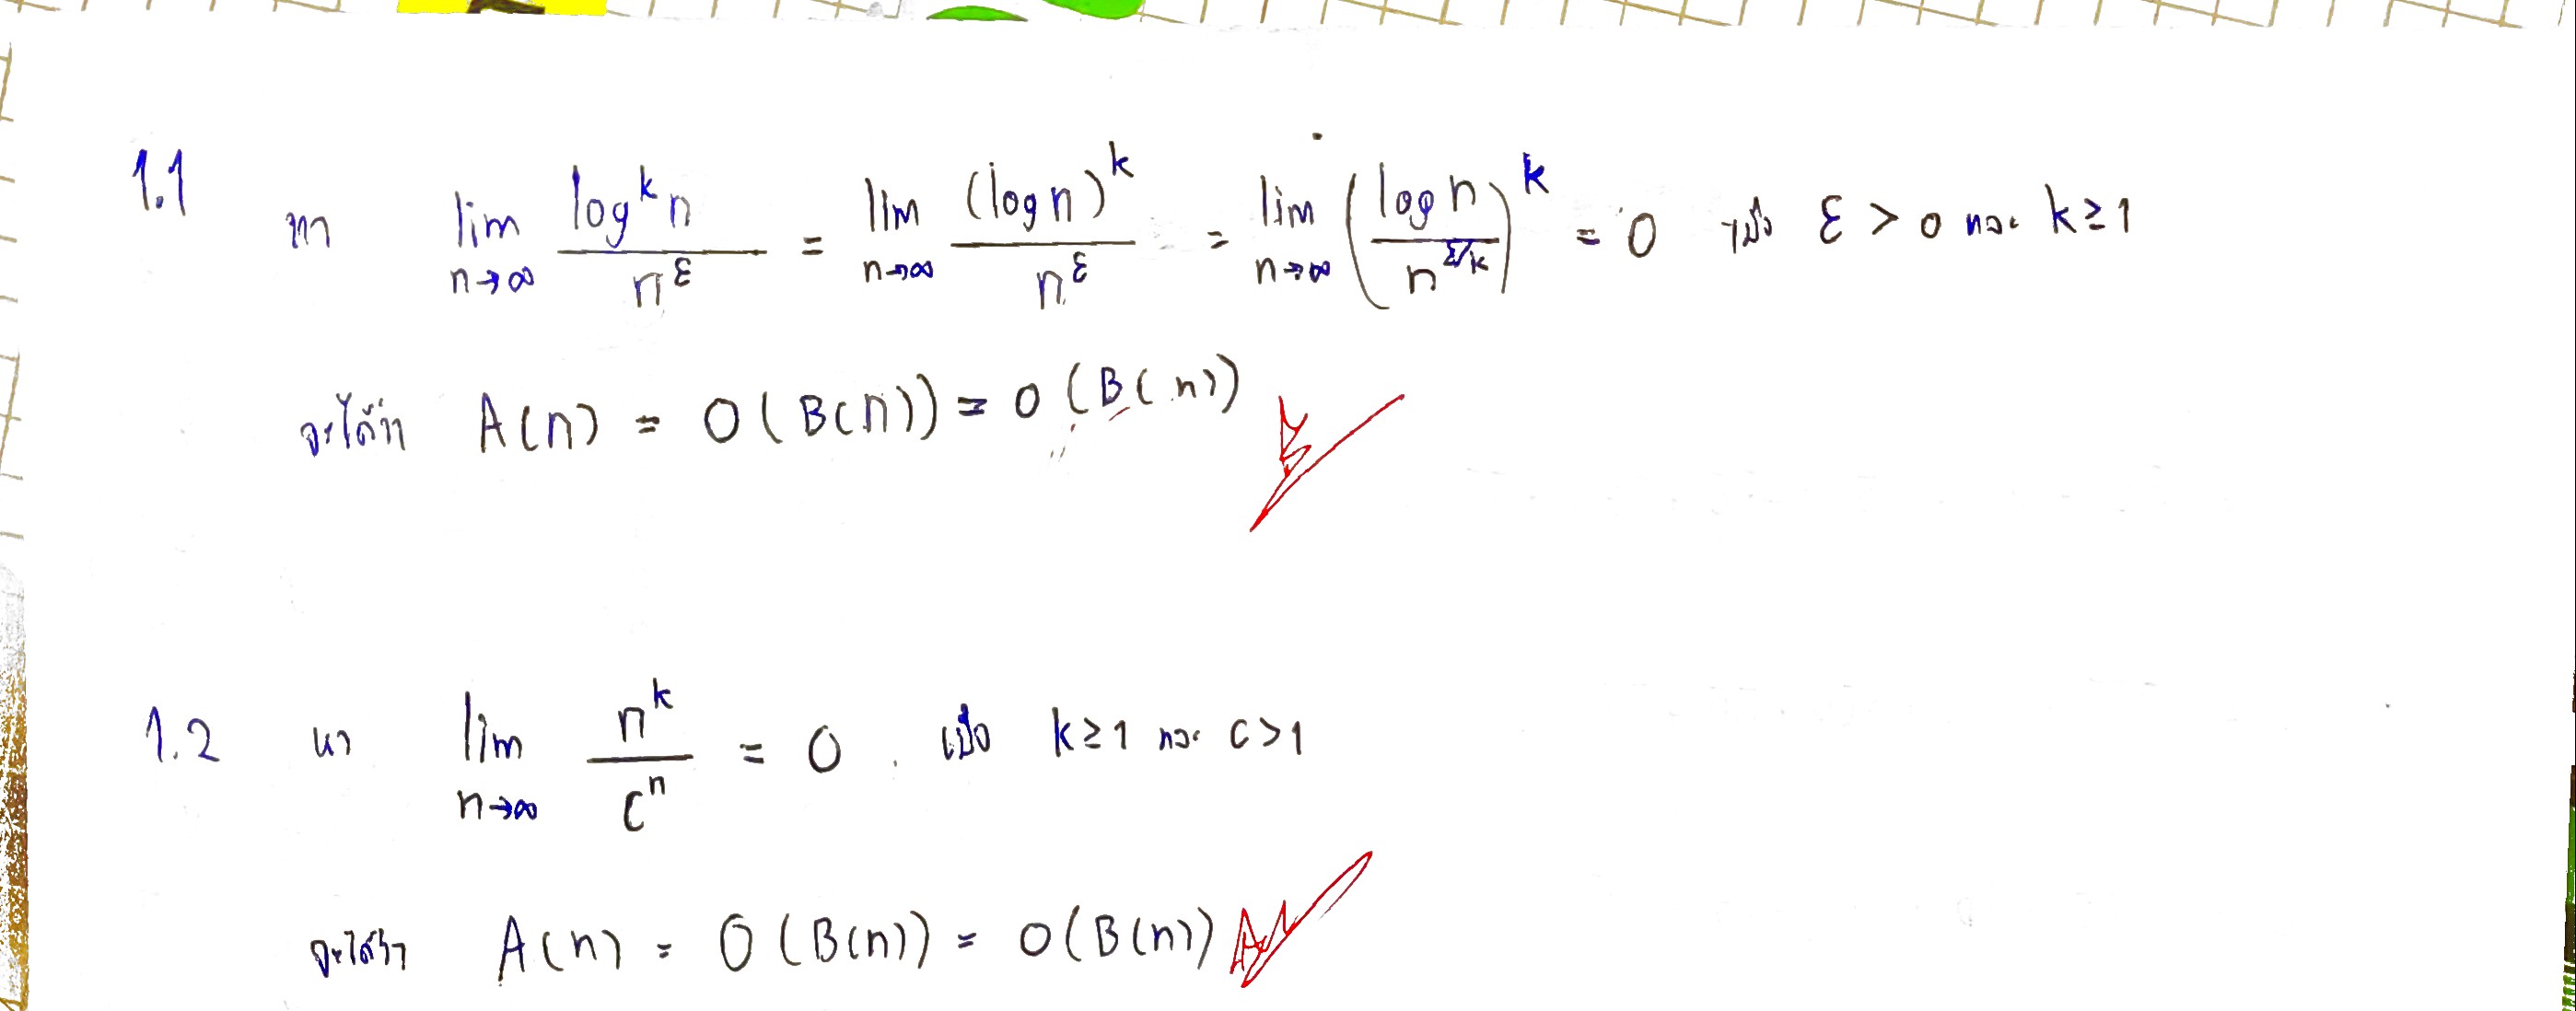 1.1 หา lim n→∞ log^k n / n^ε = lim n→∞ (log n)^k / n^ε = lim n→∞ (log n / n^(ε/k))^k = 0 เมื่อ ε > 0 และ k ≥ 1
จะได้ว่า A(n) = O(B(n)) = o(B(n))
1.2 หา lim n→∞ n^k / c^n = 0 . เมื่อ k ≥ 1 และ c > 1
จะได้ว่า A(n) = O(B(n)) = o(B(n))